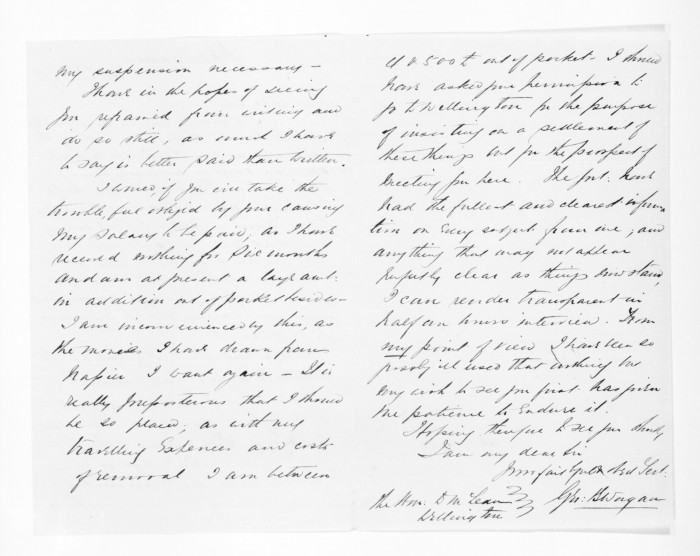 my suspension necessary –
I have in the hopes of seeing
you refrained from writing and
do so still, as much I have
to say is better said than written.
I would, if you will take the
trouble, feel obliged by your causing
my salary to be paid, as I have
received nothing for six months
and am at present a large amt:
in addition out of pocket besides –
I am inconvenienced by this, as
the monies I have drawn from
Napier I want again – It is
really preposterous that I should
be so placed, as with my
travelling Expences and costs
of removal I am between
& 500£ out of pocket – I should
have asked your permission to
go to Wellington for the purpose
of insisting on a settlement of
these things but for the prospect of
meeting you here. The Govt. have
had the fullest and clearest informa
tion on every subject from me, and
anything that may not appear
perfectly clear as things now stand,
I can render transparent in
half an hours interview. From
my point of view I have been so
grossly ill used that nothing but
my wish to see you first has given
me patience to Endure it.
Hoping therefore to see you shortly
I am my dear Sir
Your faithful & obdt Servt.
Geo: S Worgan
The Hon. D McLean
Wellington